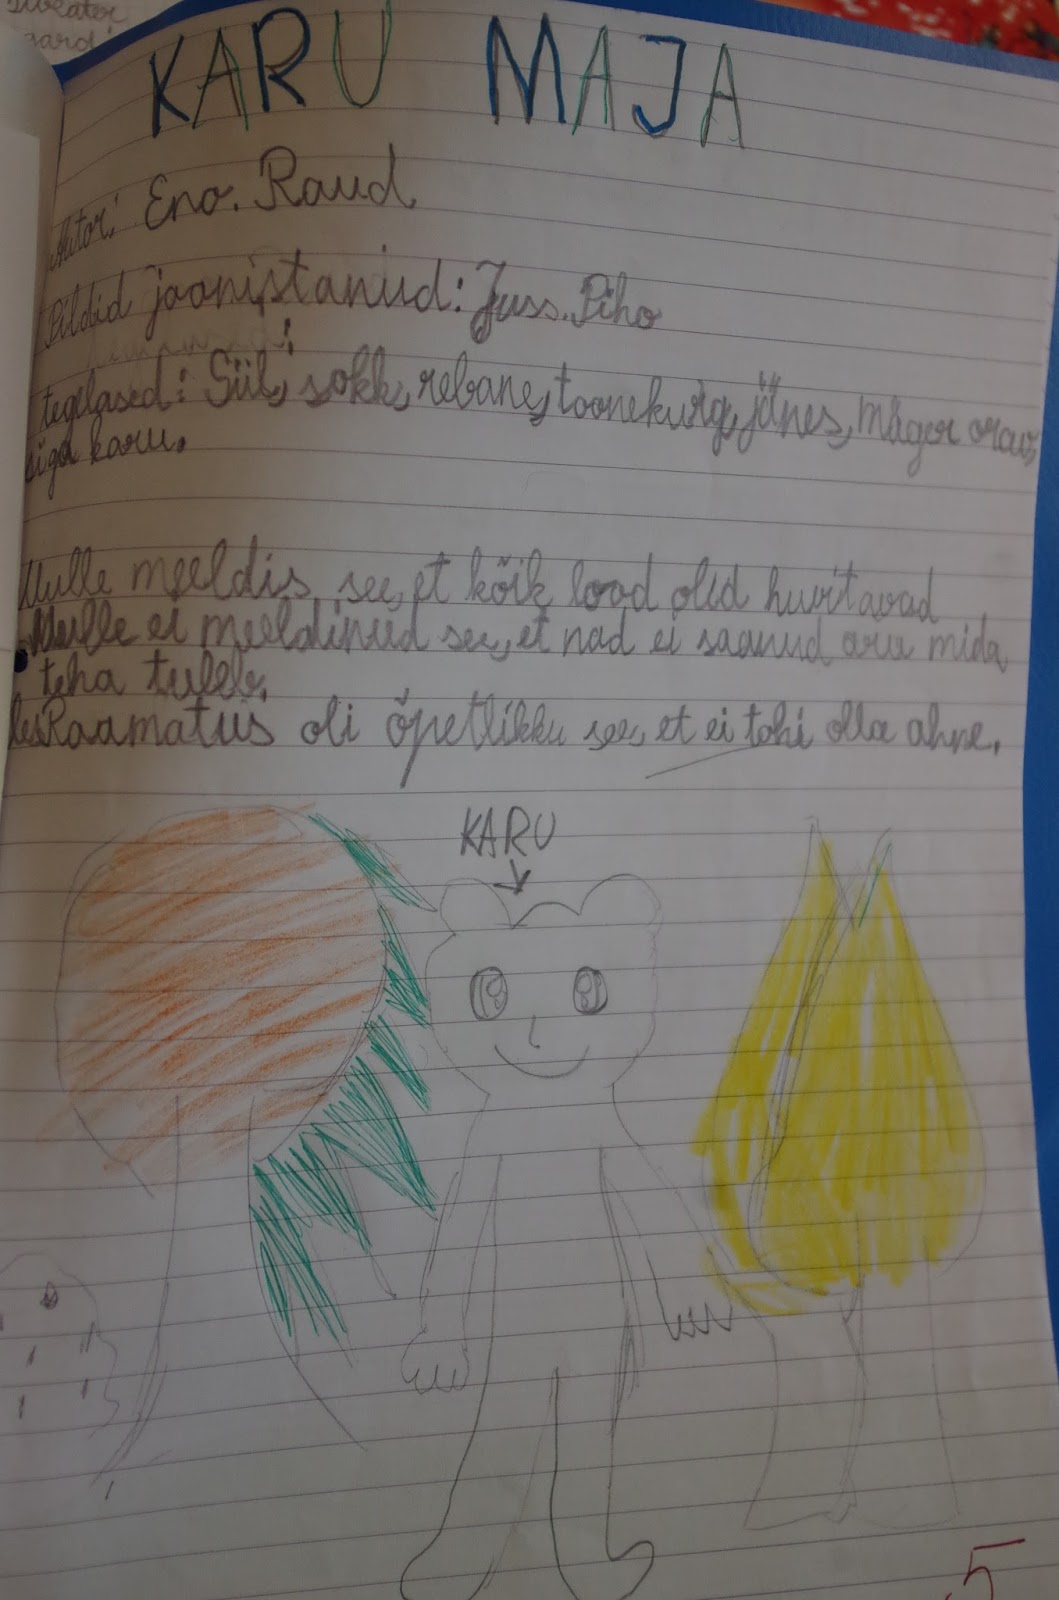 sweater
gard
KARU MAJA
Autor: Eno. Raud
Pildid joonistanud: Juss. Piho
tegelased: Siil, sokk, rebane, toonekurg, jänes, mäger orav,
siga karu.
Mulle meeldis see, et kõik lood olid huvitavad
Mulle ei meeldinud see, et nad ei saanud aru mida
teha tuleb.
Raamatus oli õpetlikku see, et ei tohi olla ahne.
KARU
5